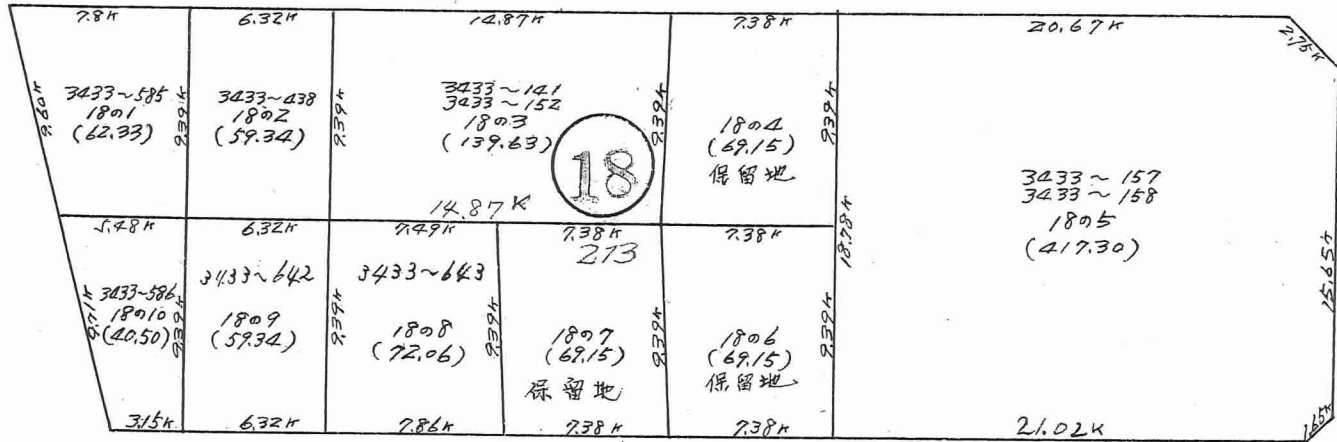 7.8K
6.32K
14.87K
7.38K
20.67K
2.75K
9.60K
3433~585
18の1
(62.33)
9.39K
3433~438
18の2
(59.34)
9.39K
3433~141
3433~152
18の3
(139.63)
18
9.39K
18の4
(69.15)
保留地
9.39K
3433~157
3433~158
18の5
(417.30)
18.78K
15.65K
14.87K
5.48K
6.32K
7.49K
7.38K
273
7.38K
9.71K
3433~586
18の10
(40.50)
9.39K
3433~642
18の9
(59.34)
9.39K
3433~643
18の8
(72.06)
9.39K
18の7
(69.15)
保留地
9.39K
18の6
(69.15)
保留地
9.39K
3.15K
6.32K
7.86K
7.38K
7.38K
21.02K
1.65K